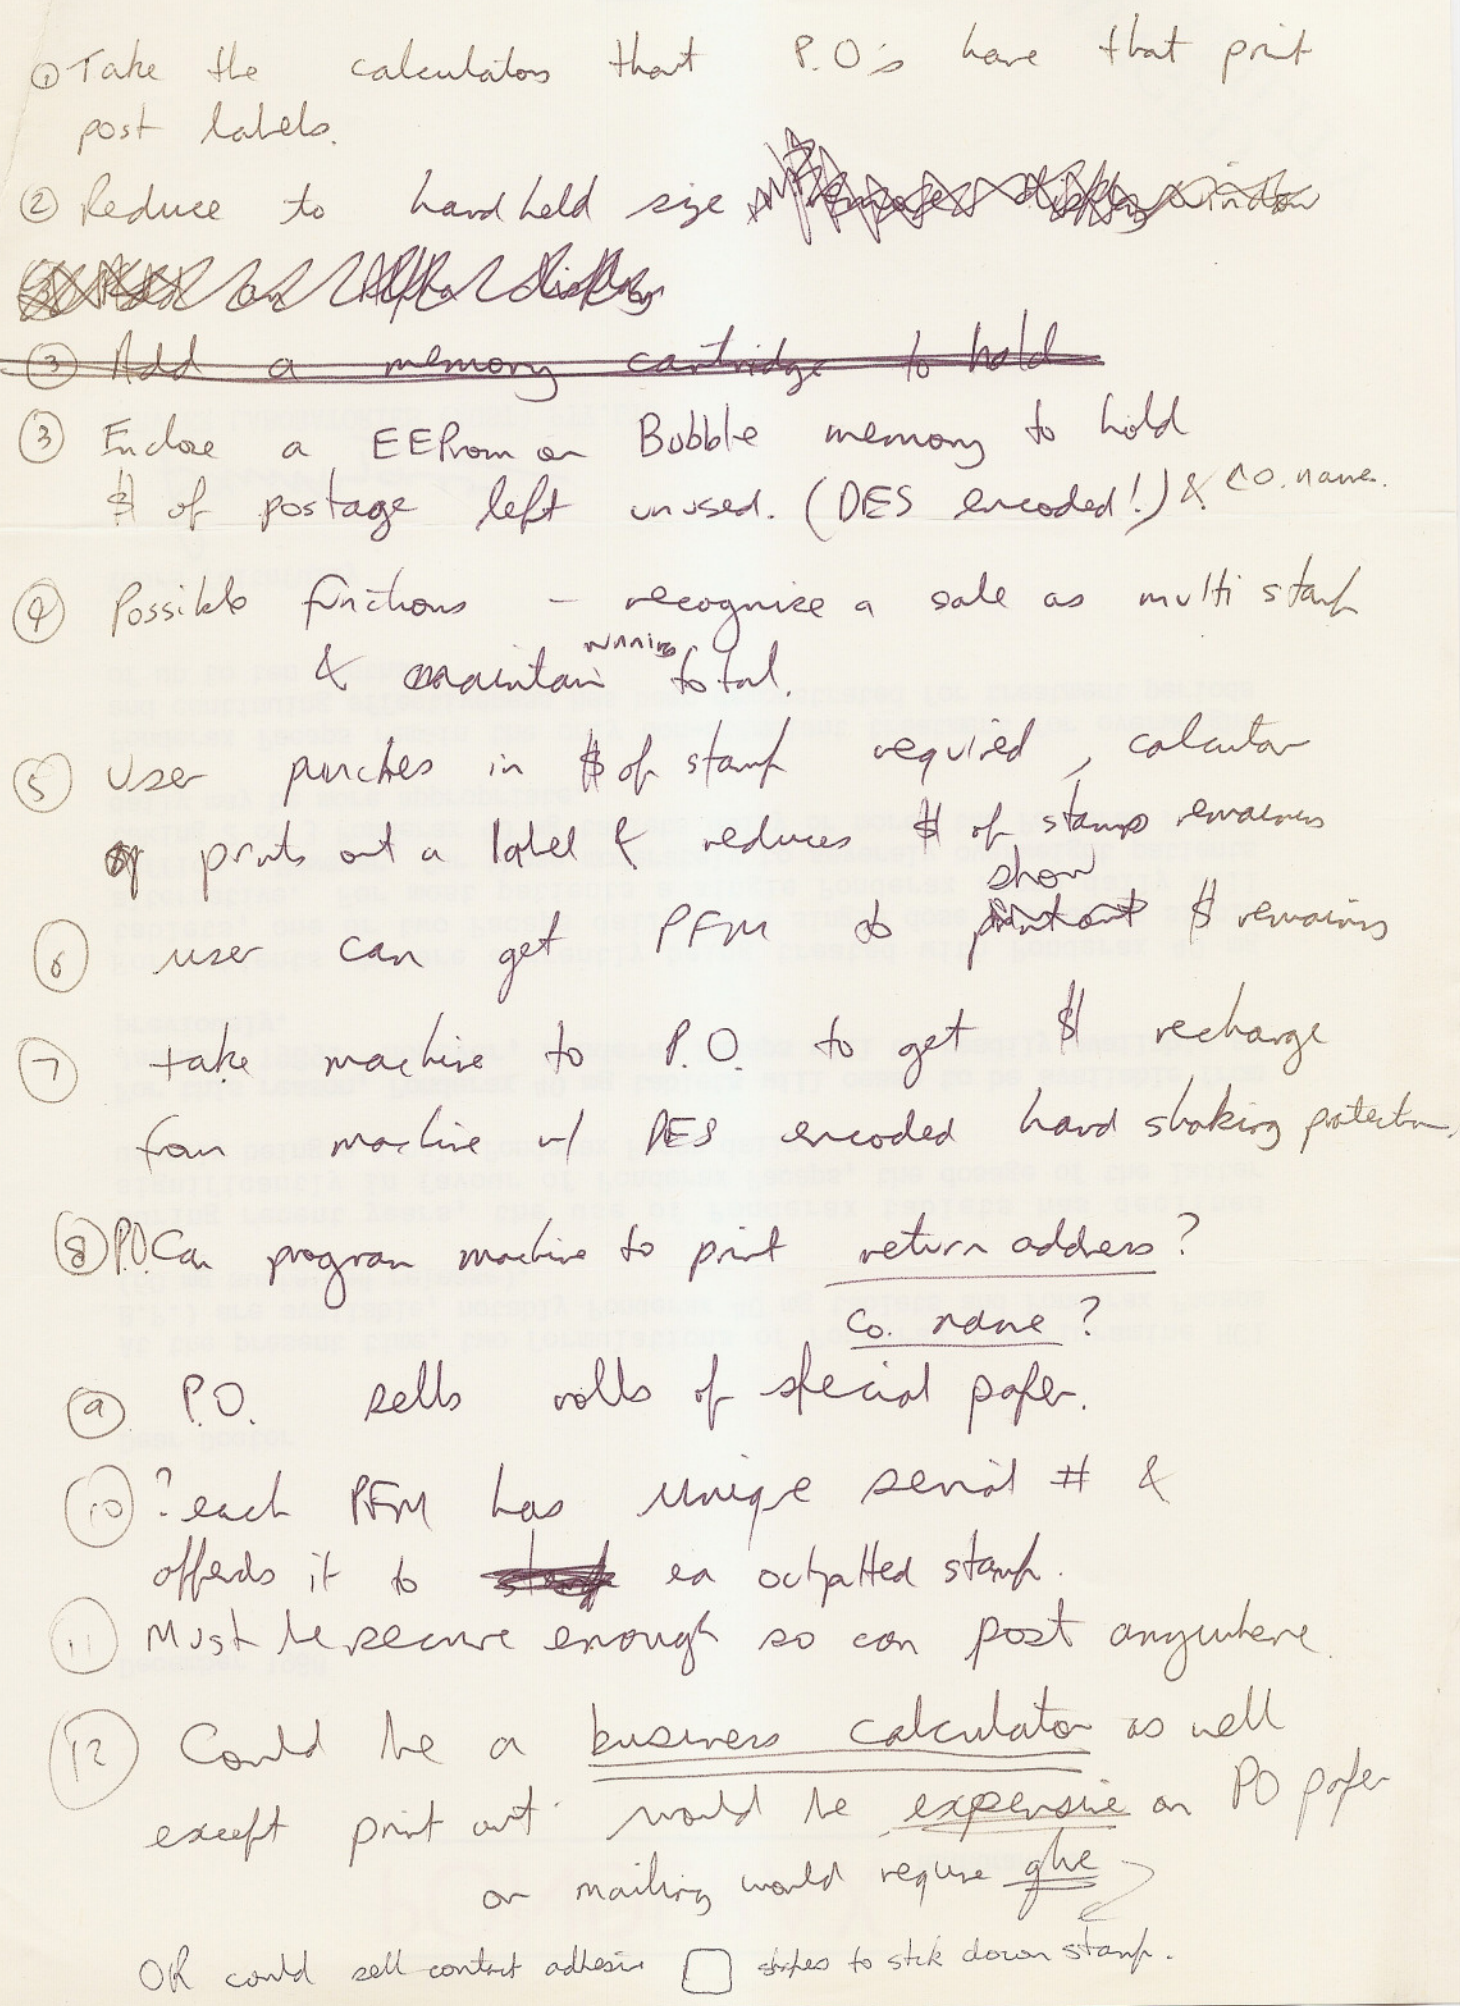 ① Take the calculators that P.O's have that print
post labels.
② Reduce to handheld size
③ Add a memory cartridge to hold
③ Enclose a EEProm or Bubble memory to hold
$ of postage left unused. (DES encoded!) & CO. name.
④ Possible functions – recognise a sale as multi stamp
& maintain running total.
⑤ User punches in $ of stamp required, calculator
prints out a label & reduces $ of stamps remains
⑥ user can get PFM to show $ remains
⑦ take machine to P.O. to get $ recharge
from machine w/ DES encoded hand shaking protection.
⑧ P.O. Can program machine to print return address?
Co. name?
⑨ P.O. sells rolls of special paper.
⑩ ? each PFM has unique serial # &
appends it to ea outputted stamp.
⑪ Must be secure enough so can post anywhere.
⑫ Could be a business calculator as well
except print out would be expensive on PO paper
or mailing would require glue
OR could sell contact adhesive shapes to stick down stamp.